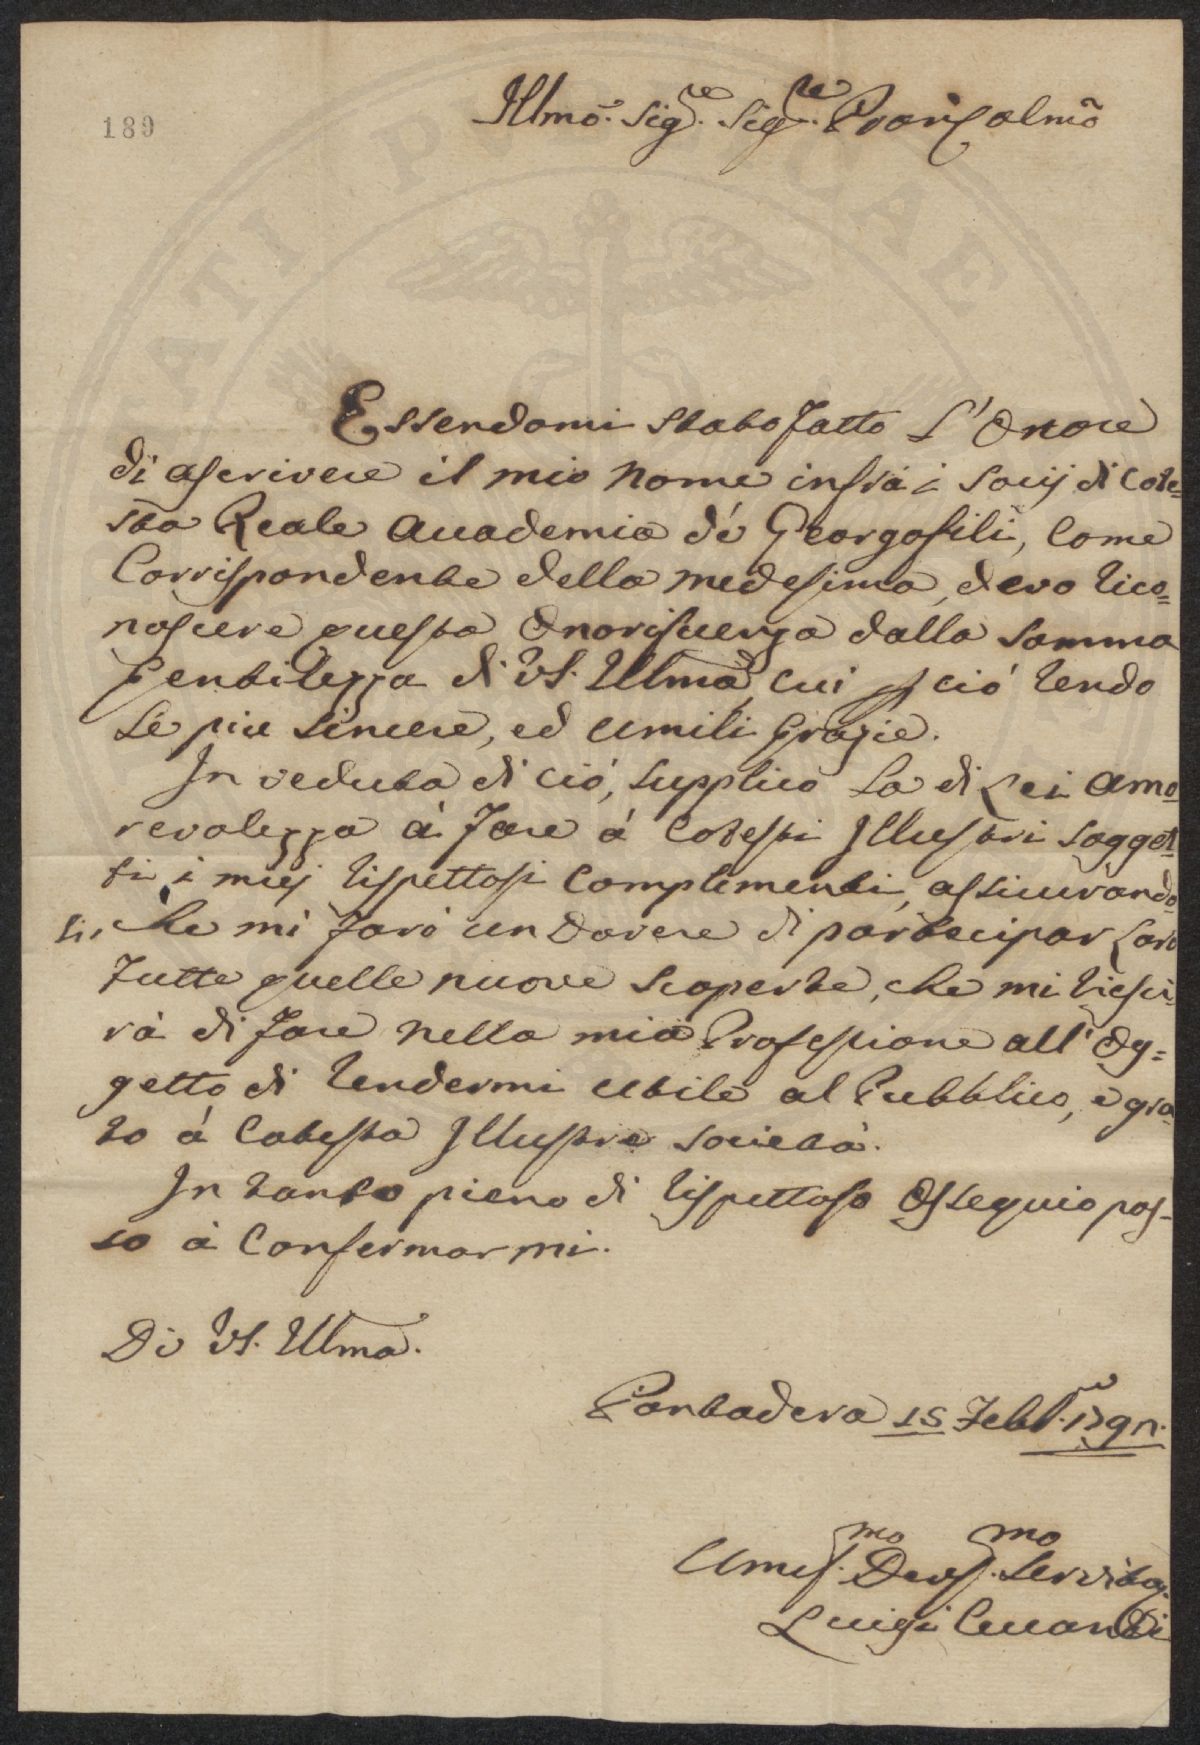 189
Illmo. Sig.re Sig.re Pron Colmo
Essendomi stato fatto l'Onore
di ascrivere il mio Nome infrà i Socij di Cote=
sta Reale Accademia dé Georgofili, Come
Corrispondente della medesima, devo rico=
noscere questa Onorificenza dalla somma
Gentilezza di VS. Illma, cui p ció rendo
le piu sincere, ed umili grazie.
In veduta di ció, supplico la di Lei amo
revolezza á fare á Cotesti Illustri sogget=
ti i miej rispettosi Complimenti, assicurando
li, che mi faró un Dovere di partecipar Loro
tutte quelle nuove scoperte, che mi riesci=
rà di fare nella mia Professione all'Og=
getto di rendermi utile al Pubblico, e gra
to á Cotesta Illustre società.
In tanto pieno di rispettoso Ossequio pas=
so á Confermarmi.
Di VS. Illma.
Pontadera 15 Febb.
Umis.mo Devs.mo Servito.
Luigi